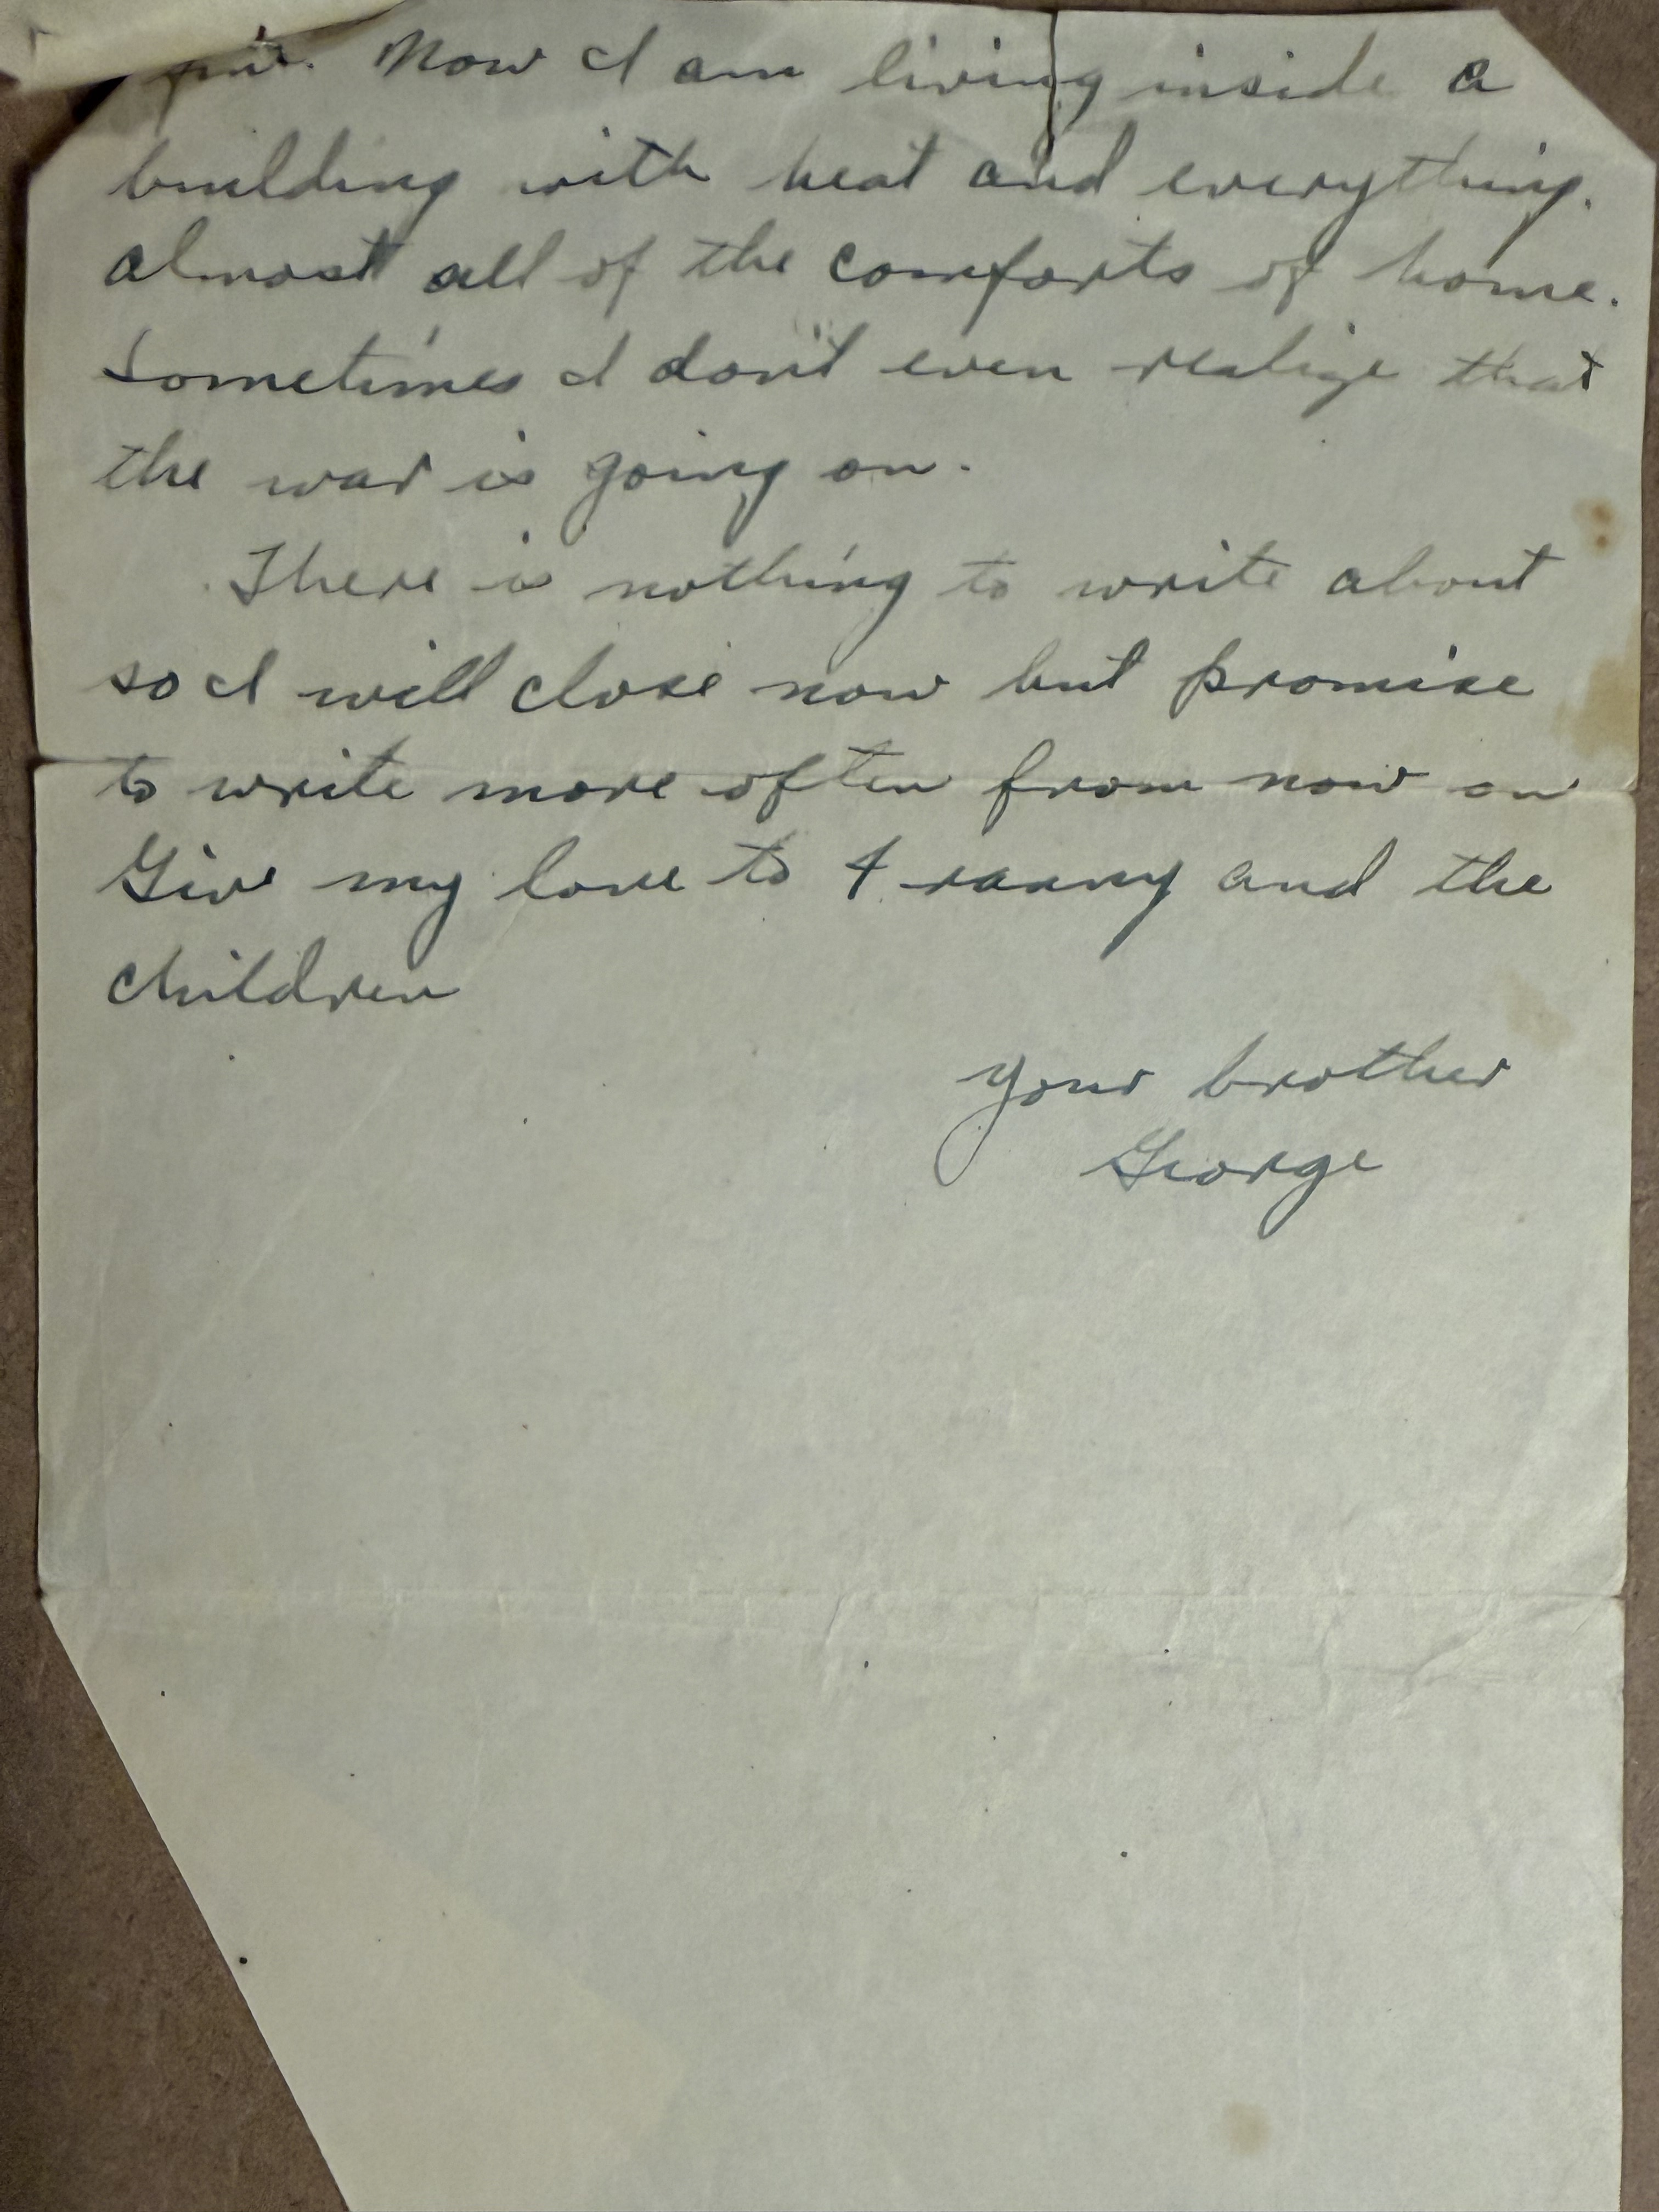 Now I am living inside a
building with heat and everything.
almost all of the comforts of home.
Sometimes I don't even realize that
the war is going on.
There is nothing to write about
so I will close now but promise
to write more often from now on
Give my love to and the
children
your brother
George